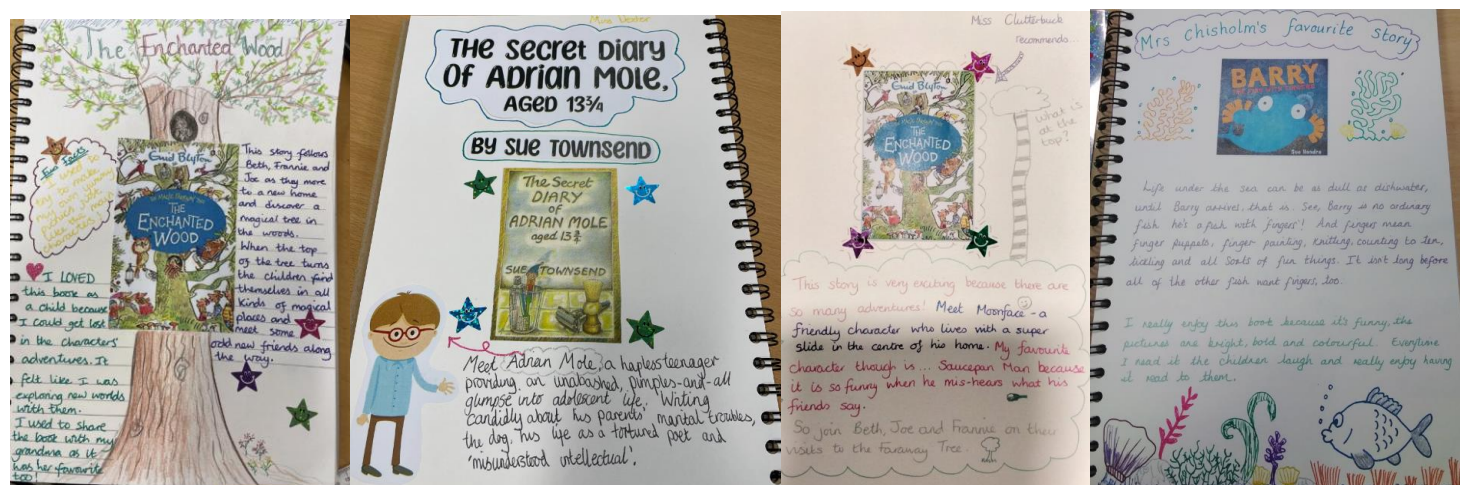 The Enchanted Wood
Fun Facts
I used to
try to make
my own yummy
Enid Blyton
THE
ENCHANTED
WOOD
This story follows
Beth, Frannie and
Joe as they move
to a new home
and discover a
magical tree in
the woods.
When the top
of the tree turns
the children find
themselves in all
kinds of magical
places and
meet some
odd new friends along
the way.
I LOVED
this book as
a child because
I could get lost
in the characters
adventures. It
felt like I was
exploring new worlds
with them.
I used to share
the book with my
grandma as it
was her favourite
too!
THE SECRET DIARY
OF ADRIAN MOLE,
AGED 13¾
BY SUE TOWNSEND
The Secret
DIARY
of
ADRIAN MOLE
aged 13¾
SUE TOWNSEND
Meet Adrian Mole, a hapless teenager
providing an unabashed, pimples-and-all
glimpse into adolescent life. Writing
candidly about his parents' marital troubles,
the dog, his life as a tortured poet and
'misunderstood intellectual'.
Miss Clutterbuck
recommends...
Enid Blyton
THE
ENCHANTED
WOOD
What is
at the
top?
This story is very exciting because there are
so many adventures! Meet Moonface - a
friendly character who lives with a super
slide in the centre of his home. My favourite
character though is... Saucepan Man because
it is so funny when he mis-hears what his
friends say.
So join Beth, Joe and Frannie on their
visits to the Faraway Tree.
Mrs Chisholm's favourite story
BARRY
Sue Hendra
Life under the sea can be as dull as dishwater,
until Barry arrives, that is. See, Barry is no ordinary
fish he's a fish with fingers! And fingers mean
finger puppets, finger painting, knitting, counting to ten,
tickling and all sorts of fun things. It isnt long before
all of the other fish want fingers, too.
I really enjoy this book because it's funny, the
pictures are bright, bold and colourful. Everytime
I read it the children laugh and really enjoy having
it read to them.